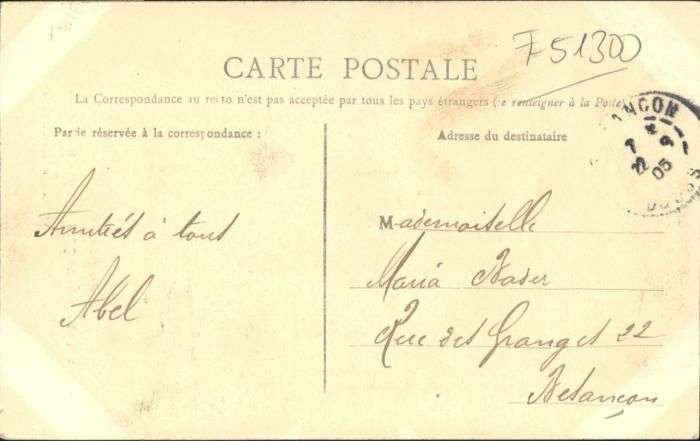 F51300
CARTE POSTALE
La Correspondance au recto n'est pas acceptée par tous les pays étrangers (se renseigner à la Poste)
Partie réservée à la correspondance :
Adresse du destinataire
7
22 9
05
DOUBS
Amitiés à tous
Abel
Mademoiselle
Maria
Rue des Granges 22
Besançon